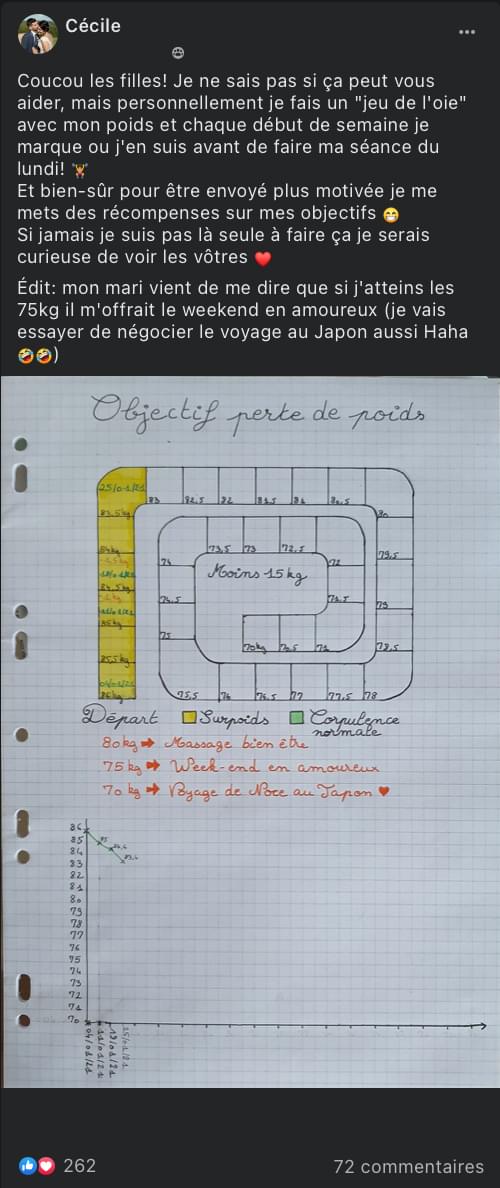 Cécile
Coucou les filles! Je ne sais pas si ça peut vous
aider, mais personnellement je fais un "jeu de l'oie"
avec mon poids et chaque début de semaine je
marque ou j'en suis avant de faire ma séance du
lundi! 🏋️
Et bien-sûr pour être envoyé plus motivée je me
mets des récompenses sur mes objectifs 😁
Si jamais je suis pas là seule à faire ça je serais
curieuse de voir les vôtres ❤️
Édit: mon mari vient de me dire que si j'atteins les
75kg il m'offrait le weekend en amoureux (je vais
essayer de négocier le voyage au Japon aussi Haha
🤣🤣)
Objectif perte de poids
25/01/21
83 82,5 82 81,5 81 80,5
83,5kg 80
73,5 73 72,5
84kg 79,5
-1,5kg 74 72
18/01/21 Moins 15kg
84,5kg
-1kg 74,5 71,5 79
11/01/21
85kg
75 70kg 70,5 71 78,5
85,5kg
04/01/21
86kg 75,5 76 76,5 77 77,5 78
Départ Surpoids Corpulence
normale
80kg ➡ Massage bien être
75kg ➡ Week-end en amoureux
70kg ➡ Voyage de Noce au Japon ♥
86
85 85
84 84,4
83 83,4
82
81
80
79
78
77
76
75
74
73
72
71
70
04/01/21 11/01/21 18/01/21 25/01/21
262 72 commentaires